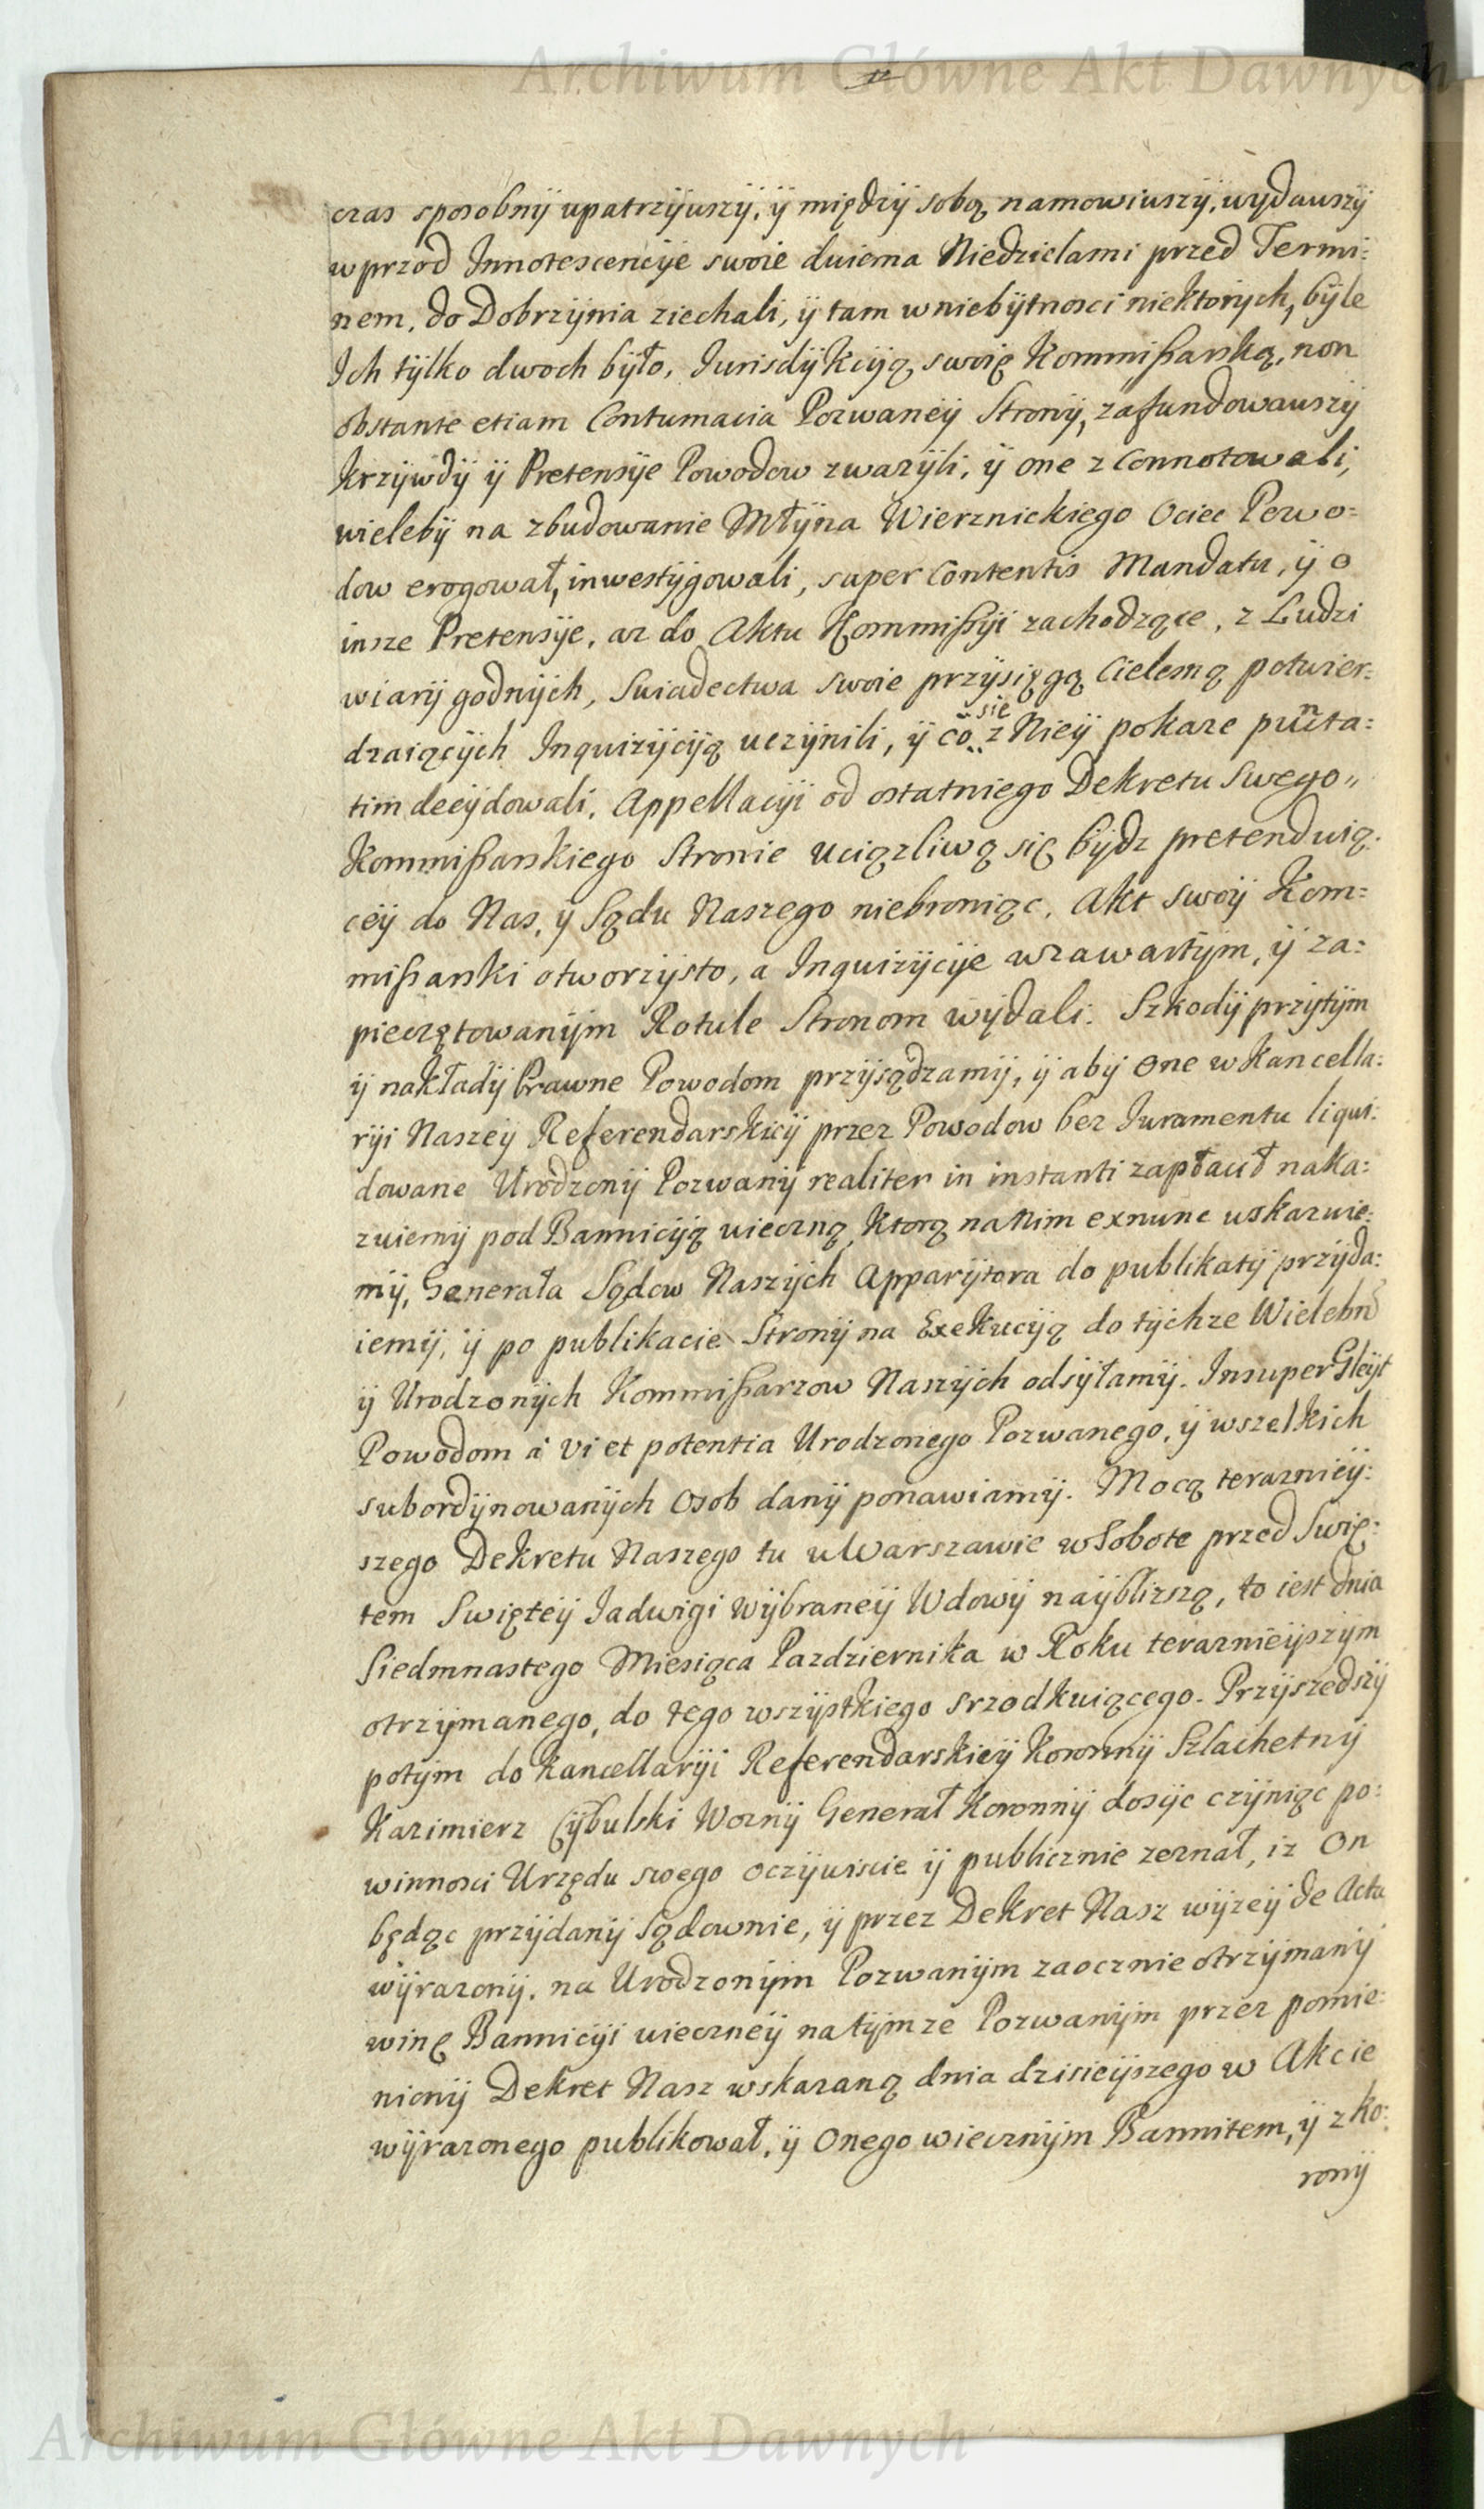 Archiwum Główne Akt Dawnych
czas sposobnÿ upatrzÿwszÿ, ÿ międzÿ sobą namowiwszÿ, wÿdawszÿ
wprzod Innotescencÿe swoie dwiema Niedzielami przed Termi:
nem, do Dobrzÿnia ziechali, ÿ tam w niebÿtnosci niektorÿch, bÿle
Ich tÿlko dwoch bÿło, Iurisdÿkcÿą swoię Kommißarską, non
obstante etiam Contumacia Pozwaneÿ Stronÿ, zafundowawszÿ
krzÿwdÿ ÿ Pretensÿe Powodow zwazÿli, ÿ one zConnotowali,
wielebÿ na zbudowanie Młÿna Wierznickiego Ociec Powo=
dow erogował, inwestÿgowali, super Contentis Mandatu, ÿ o
insze Pretensÿe, az do Aktu Kommißÿi zachodzące, z Ludzi
wiarÿ godnÿch, Swiadectwa swoie przÿsięgą Cielesną potwier=
dzaiącÿch Inquizÿcÿą uczÿnili, ÿ co się z Nieÿ pokaze puncta=
tim decÿdowali. Appellacÿi od ostatniego Dekretu Swego
Kommißarskiego Stronie uciązliwą się bÿdz pretenduią:
ceÿ do Nas, ÿ Sądu Naszego niebroniąc. Akt swoÿ Kom=
mißarski otworzÿsto, a Inquizÿcÿe w zawartÿm, ÿ za=
pieczętowanÿm Rotule Stronom wÿdali. Szkodÿ przÿtÿm
ÿ nakładÿ Prawne Powodom przÿsądzamÿ, ÿ abÿ one w Kancella=
rÿi Naszeÿ Referendarskieÿ przez Powodow bez Iuramentu liqui:
dowane Urodzonÿ Pozwanÿ realiter in instanti zapłacił naka=
zuiemÿ pod Bannicÿą wieczną, ktorą na Nim exnunc wskazuie:
mÿ, Generała Sądow Naszÿch Apparÿtora do publikatÿ przÿda:
iemÿ, ÿ po publikacie Stronÿ na Exekucÿą do tÿchze Wielebn
ÿ Urodzonÿch Kommißarzow Naszÿch odsÿłamÿ. Insuper Gleÿt
Powodom à vi et potentia Urodzonego Pozwanego, ÿ wszelkich
subordÿnowanÿch Osob danÿ ponawiamÿ. Mocą teraznieÿ:
szego Dekretu Naszego tu w Warszawie w Sobote przed Swię:
tem Swięteÿ Jadwigi Wÿbraneÿ Wdowÿ naÿblizszą, to iest dnia
Siedmnastego Miesiąca Pazdziernika w Roku teraznieÿszÿm
otrzÿmanego, do tego wszÿstkiego srzodkuiącego. Przÿszedszÿ
potÿm do Kancellarÿi Referendarskieÿ Koronnÿ Szlachetnÿ
Kazimierz Cÿbulski Woznÿ Generał Koronnÿ dosÿc czÿniąc po:
winnosci Urzędu swego oczÿwiscie ÿ publicznie zeznał, iz On
będąc przÿdanÿ Sądownie, ÿ przez Dekret Nasz wÿzeÿ de Actu
wÿrazonÿ, na Urodzonÿm Pozwanÿm zaocznie otrzÿmanÿ
winę Bannicÿi wieczneÿ na tÿmze Pozwanÿm przez pomie:
nionÿ Dekret Nasz wskazaną dnia dzisieÿszego w Akcie
wÿrazonego publikował, ÿ Onego wiecznÿm Bannitem, ÿ z Ko:
ronÿ
Archiwum Główne Akt Dawnych